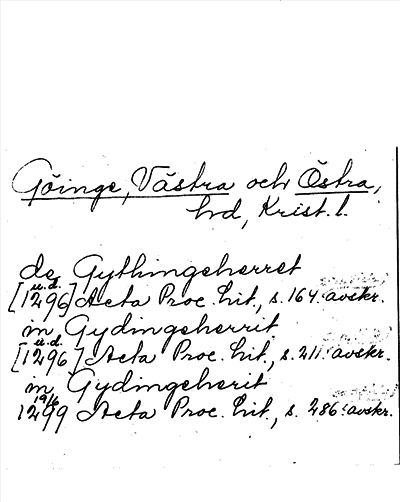 Göinge, Västra och Östra,
hd, Krist. l.
de Gythingeherret
u.d.
[1296] Acta Proc. lit., s. 164. avskr.
in Gydingeherrit
u.d.
[1296] Acta Proc. lit., s. 211. avskr.
in Gydingeherit
19/6
1299 Acta Proc. lit., s. 286. avskr.